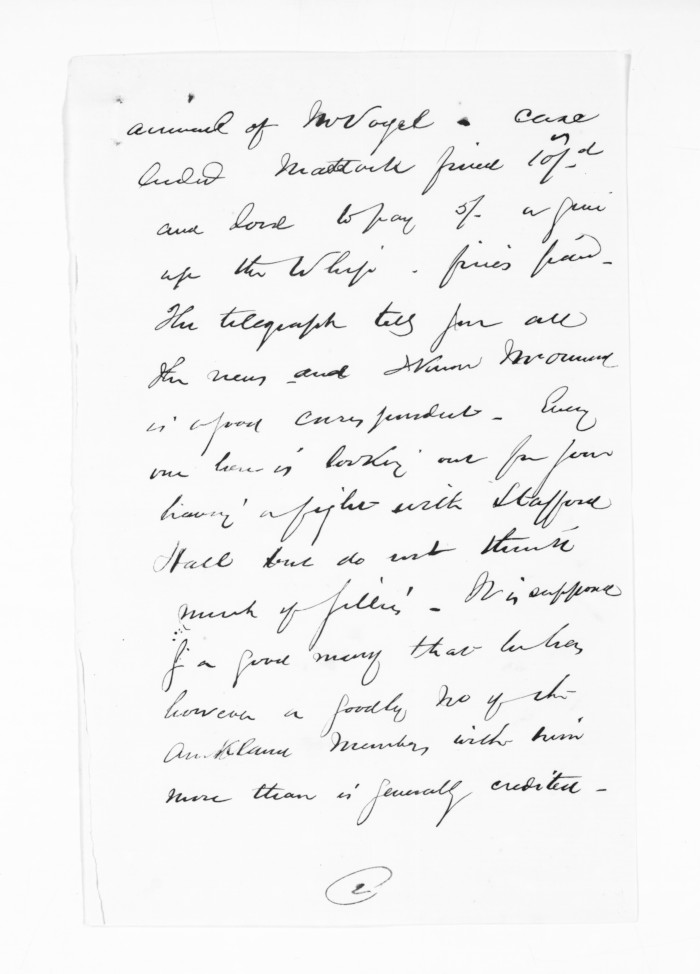 arrival of Mr Vogel - case
ended Mattock fined 10/-d
and Lord to pay 5/- or give
up the Whip - fines paid -
The telegraph tells you all
the news and
is a good correspondent - Every
one here is looking out for your
having a fight with Stafford
Hall but do not think
much of Gillies - It is supposed
by a good many that he has
however a goodly No of the
Auckland Members with him
more than is generally credited -
2